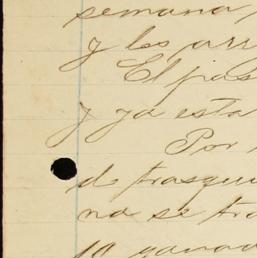 semana,
y les arr
El pas
y ya esta
Por
de trasqui
no se tra
ganad